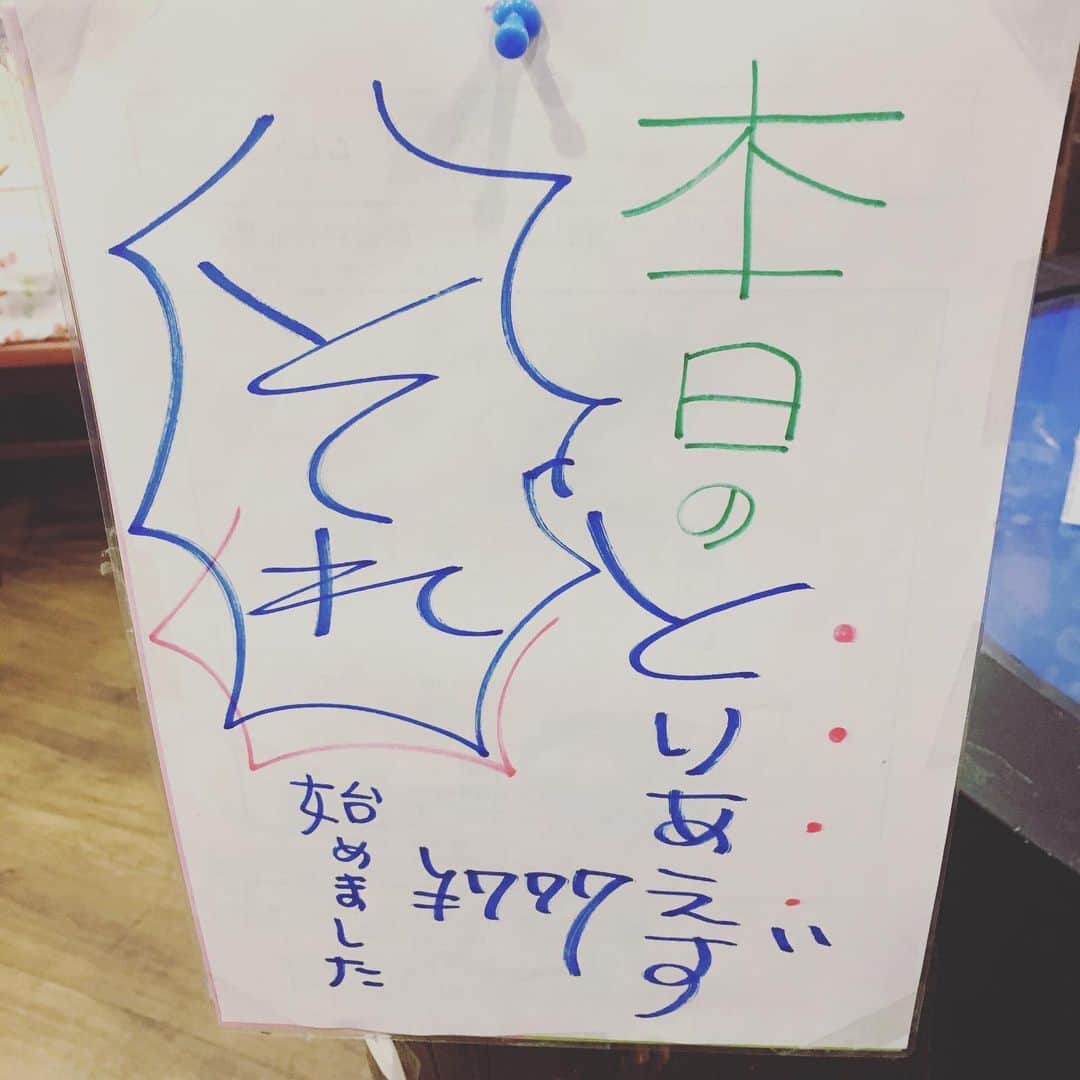 本日のとりあえず
それ
¥777
始めました